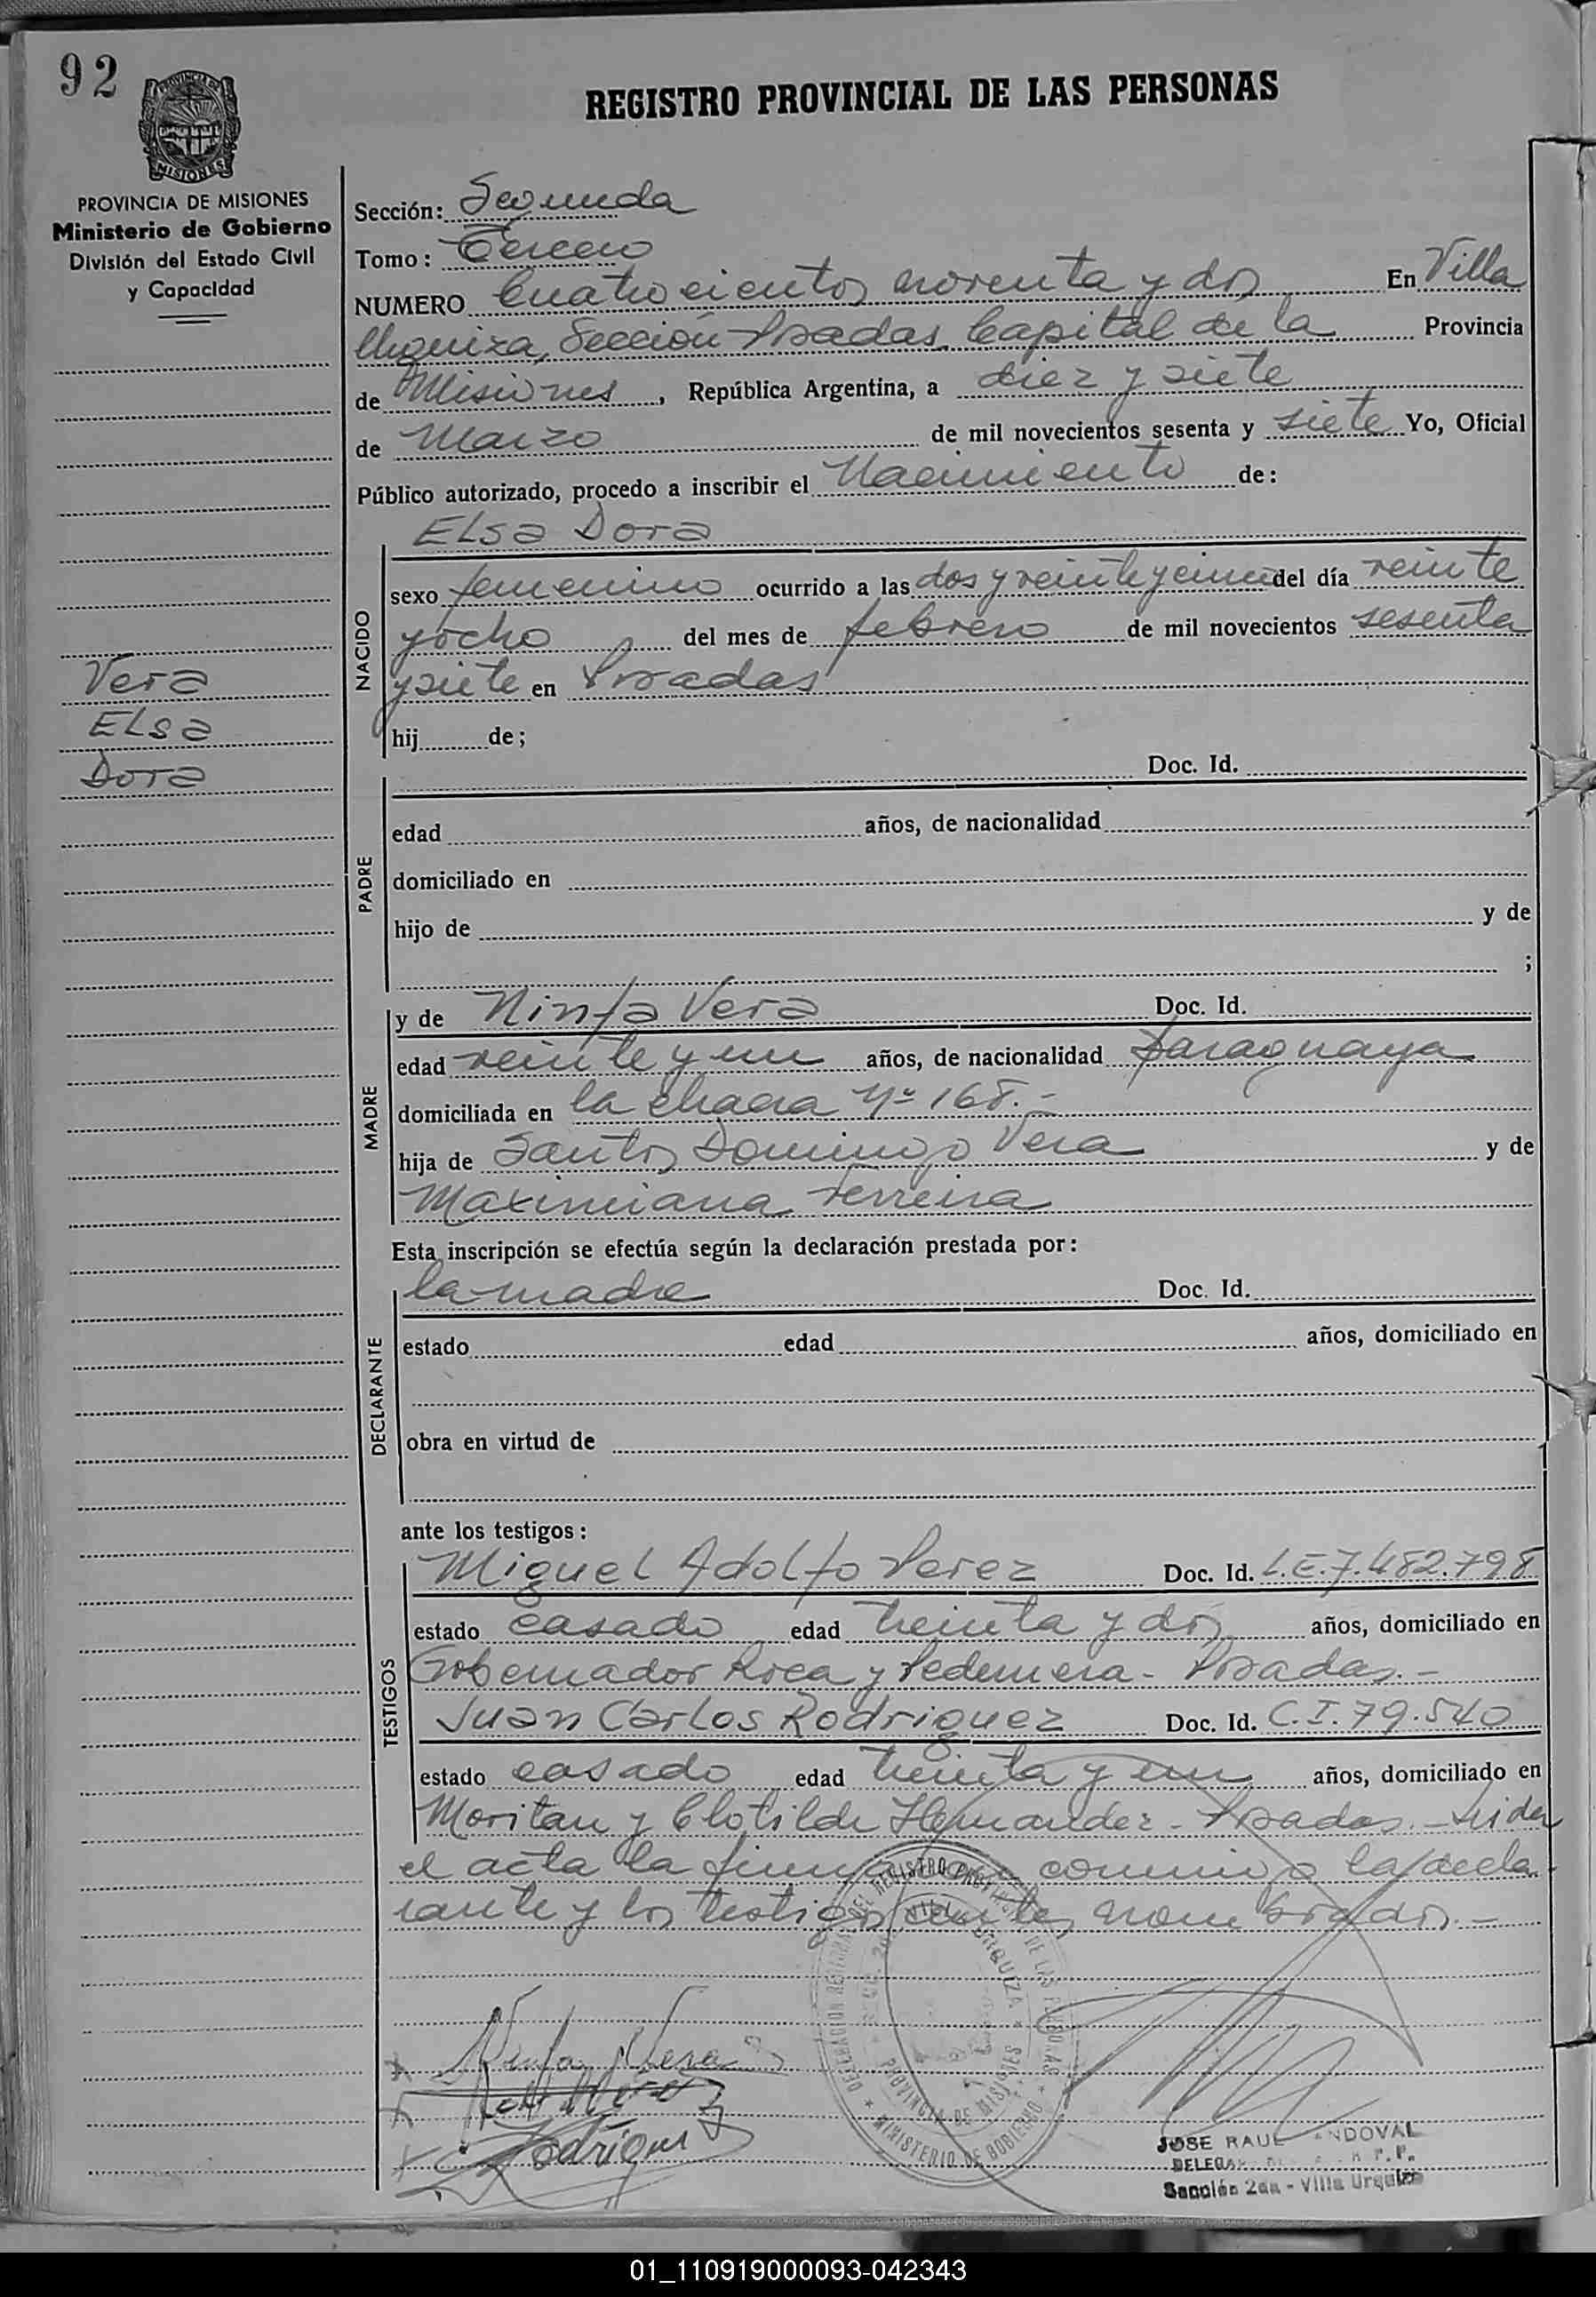 92
REGISTRO PROVINCIAL DE LAS PERSONAS
PROVINCIA DE MISIONES
Ministerio de Gobierno
División del Estado Civil
y Capacidad
Sección: Segunda
Tomo: Tercero
NUMERO Cuatrocientos noventa y dos En Villa
Urquiza, Sección Posadas Capital de la Provincia
de Misiones, República Argentina, a diez y siete
de Marzo de mil novecientos sesenta y siete Yo, Oficial
Público autorizado, procedo a inscribir el Nacimiento de:
Elsa Dora
NACIDO
sexo femenino ocurrido a las dos y veinte y cinco del día veinte
y ocho del mes de febrero de mil novecientos sesenta
y siete en Posadas
hij de;
Vera
Elsa
Dora
PADRE
Doc. Id.
edad años, de nacionalidad
domiciliado en
hijo de y de
;
MADRE
y de Ninfa Vera Doc. Id.
edad veinte y un años, de nacionalidad Paraguaya
domiciliada en la chacra Nº 168.-
hija de Santos Domingo Vera y de
Maximiana Ferreira
Esta inscripción se efectúa según la declaración prestada por:
DECLARANTE
la madre Doc. Id.
estado edad años, domiciliado en
obra en virtud de
ante los testigos:
TESTIGOS
Miguel Adolfo Perez Doc. Id. L.E.7.482.798
estado casado edad treinta y dos años, domiciliado en
Gobernador Roca y Pedernera - Posadas.-
Juan Carlos Rodriguez Doc. Id. C.I.79.540
estado casado edad treinta y un años, domiciliado en
Moritan y Clotilde Hernandez - Posadas.- Leida
el acta la firman conmigo la decla
rante y los testigos antes nombrados.-
Ninfa Vera
Rodrigue
JOSE RAUL SANDOVAL
Sección 2da - Villa Urquiza
01_110919000093-042343